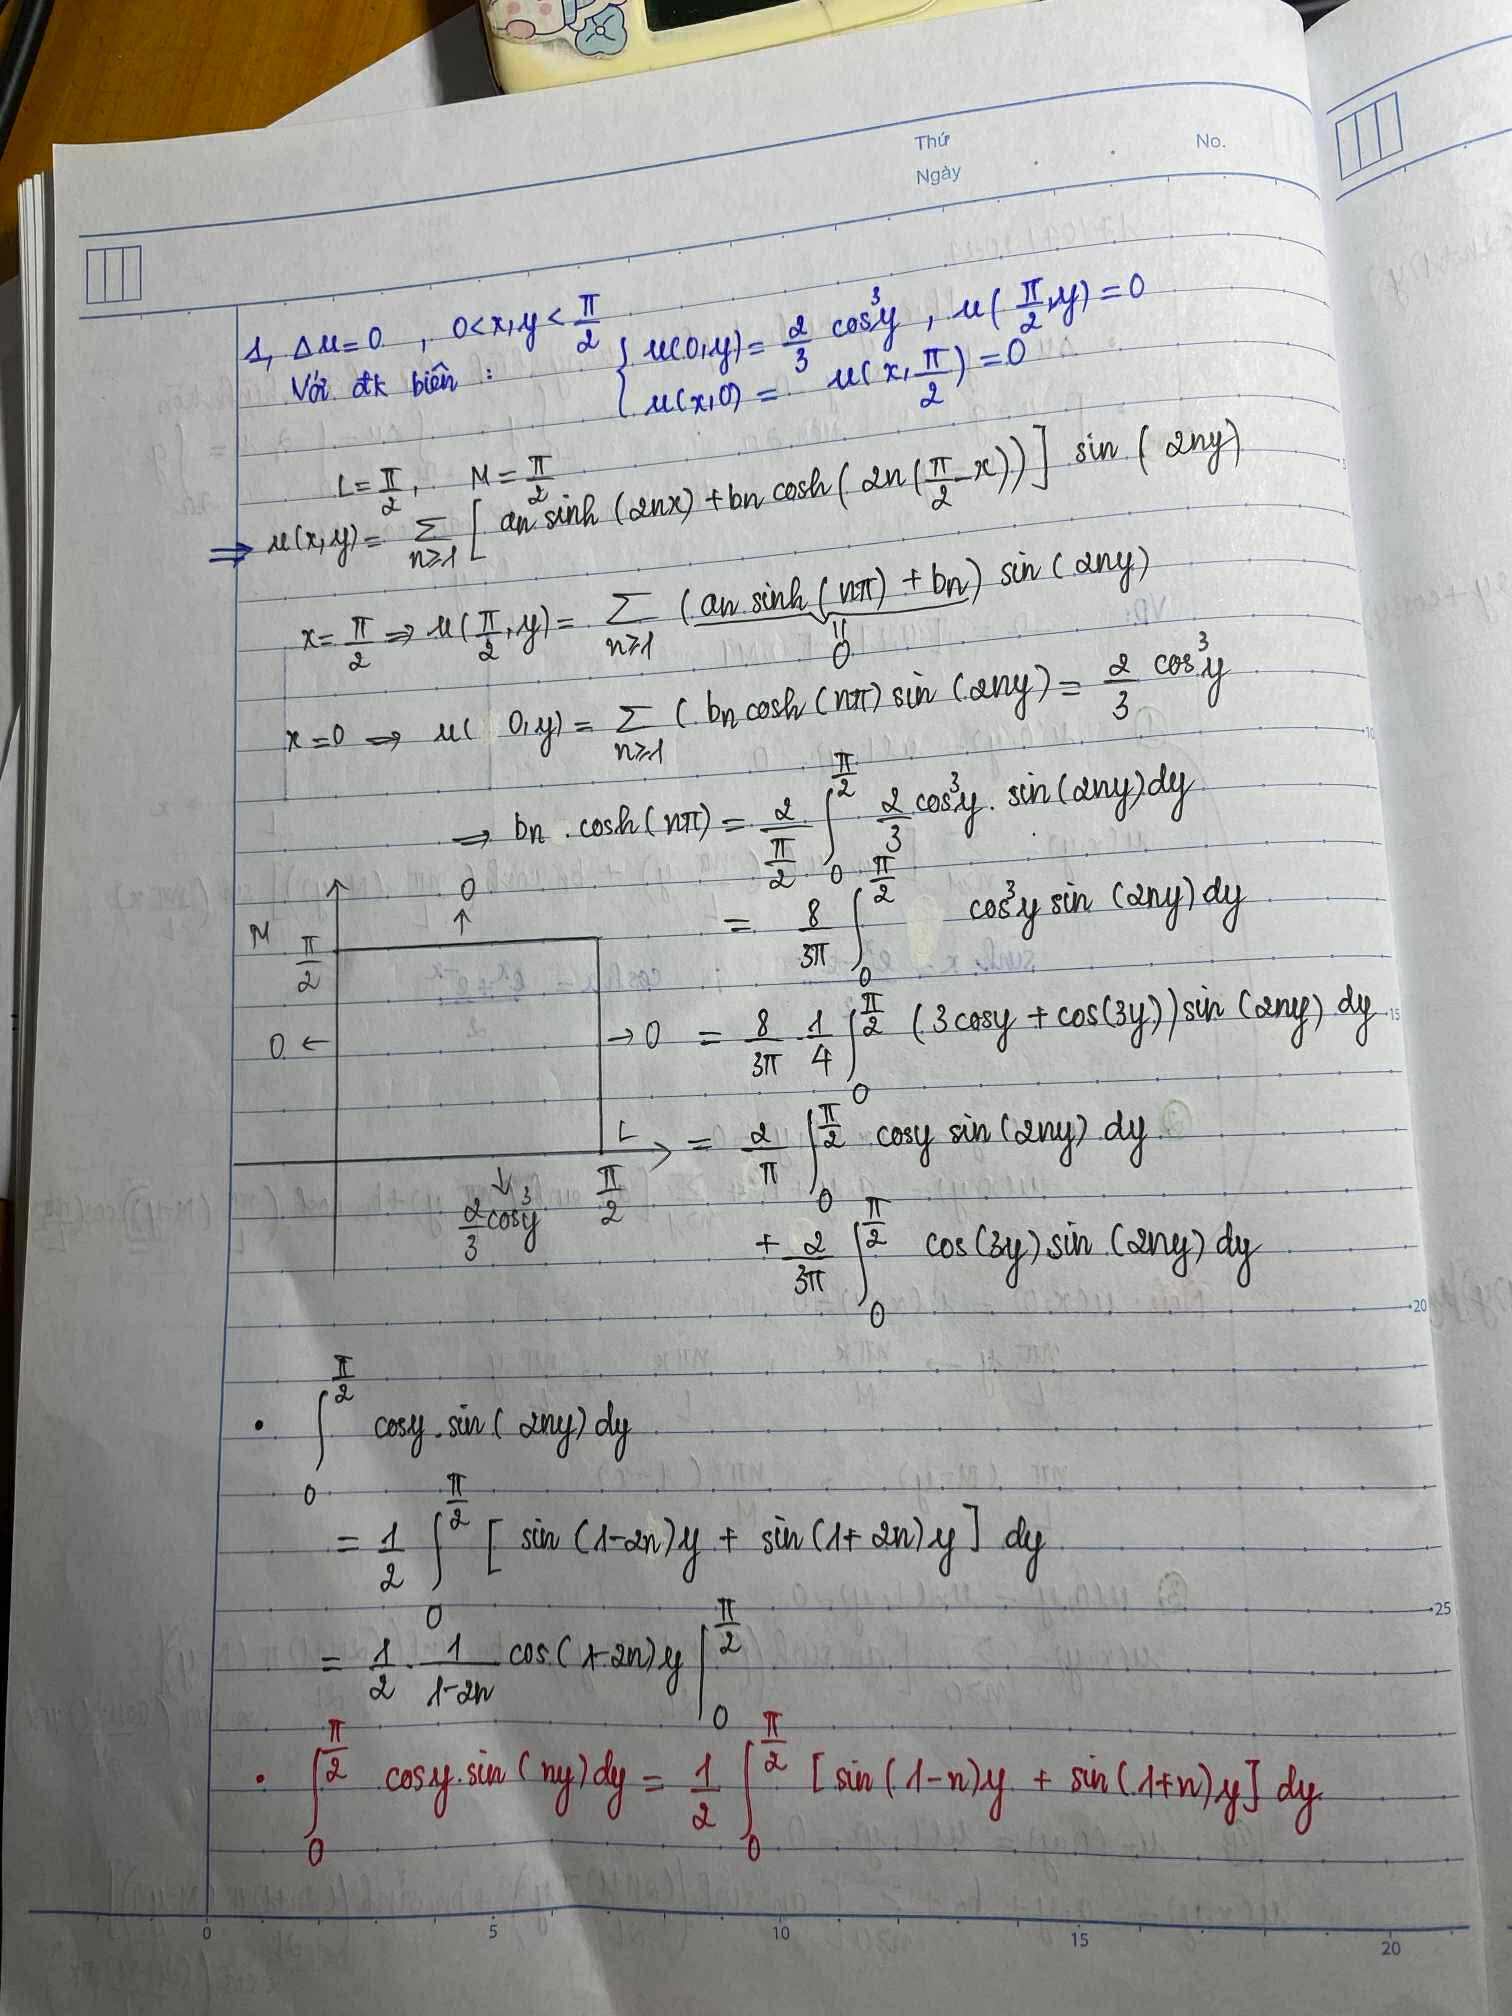 Thứ
Ngày
No.
1, Δu=0 , 0<x,y<π/2
Với đk biên : { u(0,y) = 2/3 cos³y , u(π/2,y) = 0
u(x,0) = u(x,π/2) = 0
L = π/2 , M = π/2
⇒ u(x,y) = Σ n≥1 [ an sinh (2nx) + bn cosh ( 2n (π/2 - x)) ] sin ( 2ny)
x = π/2 ⇒ u(π/2,y) = Σ n≥1 (an sinh (nπ) + bn) sin (2ny)
= 0
x=0 ⇒ u( 0,y) = Σ n≥1 ( bn cosh (nπ) sin (2ny) = 2/3 cos³y
⇒ bn . cosh (nπ) = 2/(π/2) ∫₀^(π/2) 2/3 cos³y. sin (2ny) dy
= 8/3π ∫₀^(π/2) cos³y sin (2ny) dy
= 8/3π . 1/4 ∫₀^(π/2) (3cosy + cos(3y)) sin (2ny) dy
= 2/π ∫₀^(π/2) cosy sin (2ny) dy
+ 2/3π ∫₀^(π/2) cos (3y) sin (2ny) dy
M π/2
0
0 ←
→ 0
L
π/2
2/3 cos³y
• ∫₀^(π/2) cosy . sin ( 2ny) dy
= 1/2 ∫₀^(π/2) [ sin (1-2n)y + sin (1+2n)y ] dy
= 1/2 . 1/(1-2n) cos (1-2n)y |₀^(π/2)
• ∫₀^(π/2) cosy. sin ( ny) dy = 1/2 ∫₀^(π/2) [ sin ( 1-n)y + sin (1+n)y ] dy
5
10
15
20
25
0 5 10 15 20